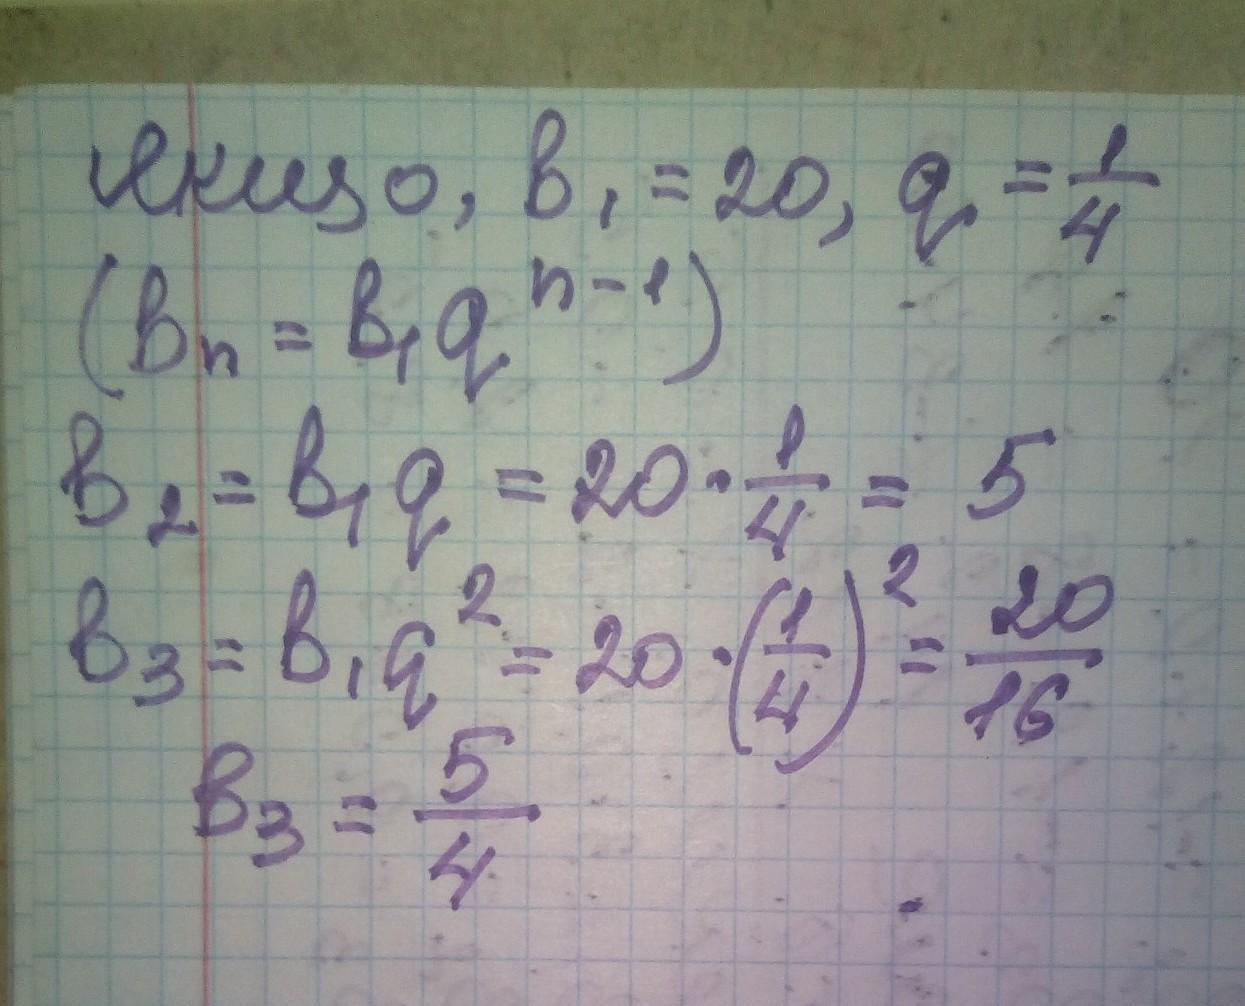 Якщо, в₁ = 20, q = 1/4
(вₙ = в₁qⁿ⁻¹)
в₂ = в₁q = 20 · 1/4 = 5
в₃ = в₁q² = 20 · (1/4)² = 20/16
в₃ = 5/4